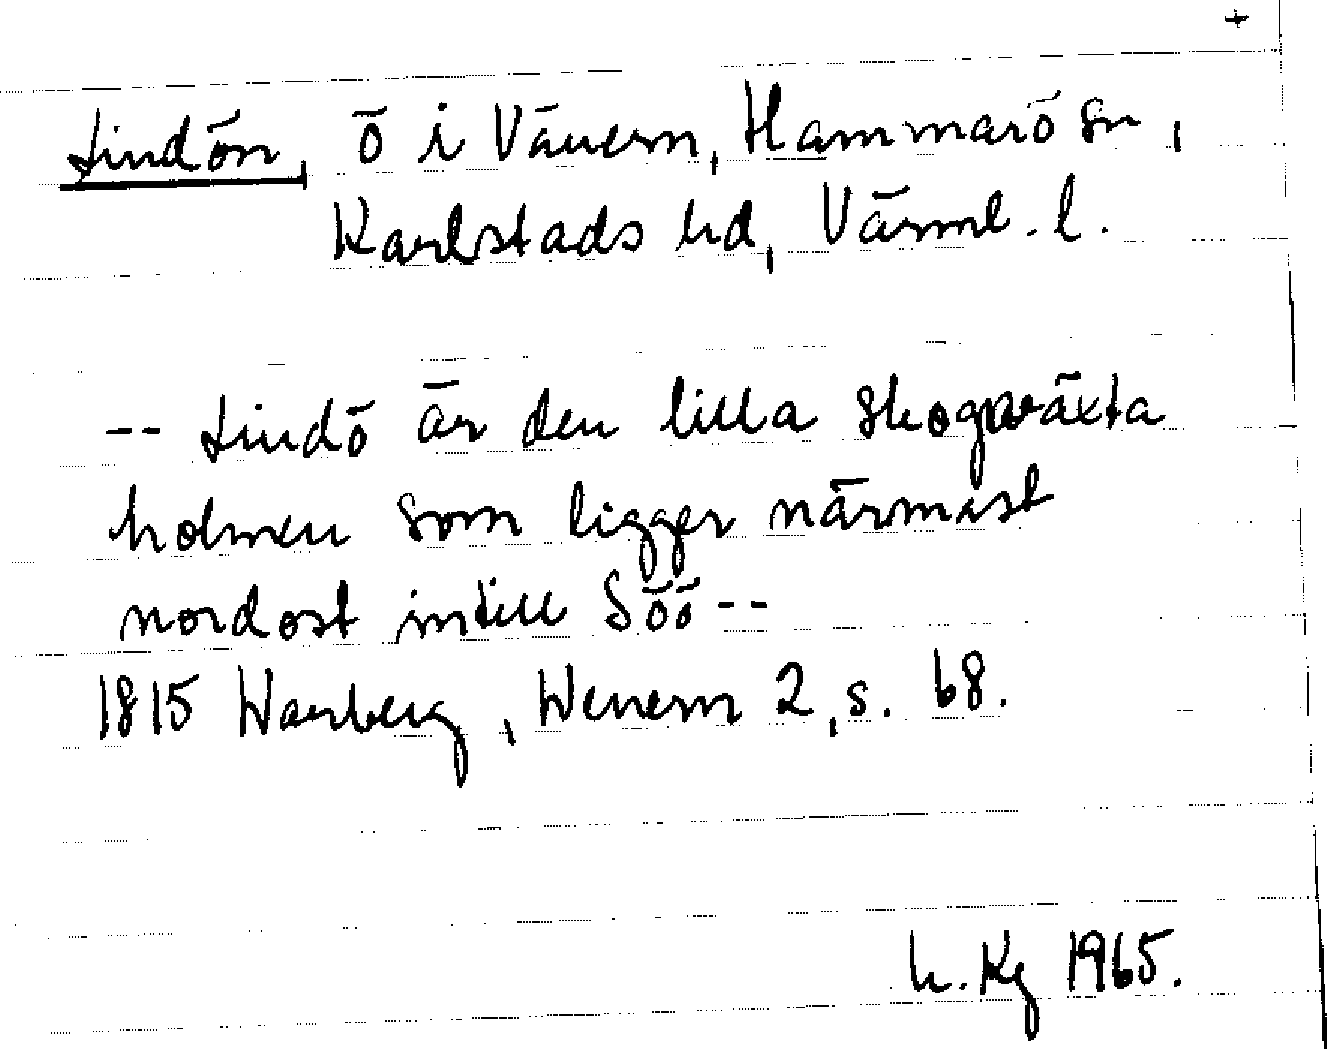 +
Lindön, ö i Vänern, Hammarö sn,
Karlstads hd, Värml. l.
-- Lindö är den lilla skogväxta
holmen som ligger närmast
nordost intill Söö --
1815 Warberg, Wenern 2, s. 68.
L. Kg 1965.